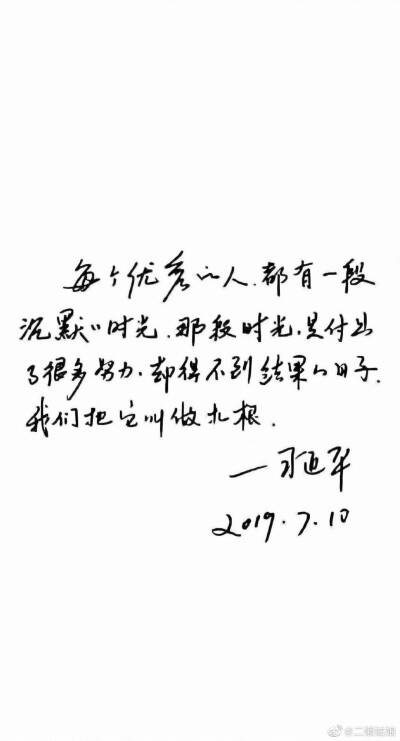 每个优秀的人,都有一段
沉默的时光.那段时光,是付出
了很多努力,却得不到结果的日子,
我们把它叫做扎根.
—习近平
2019.7.10